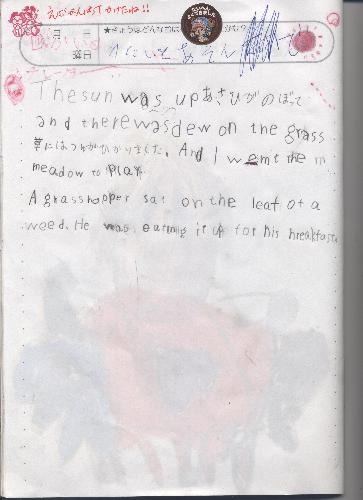 えいごがんばってかけたね!!
月 日
曜日
The sun was up あさひがのぼって
and there was dew on the grass
草にはつゆがひかりました。And I wemt the m
meadow to play.
A grasshopper sat on the leaf of a
weed. He was eating it up for his breakfast.